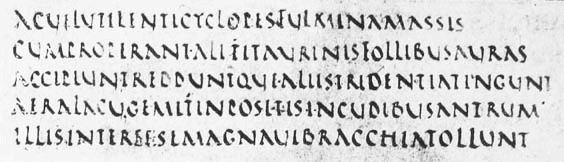 ACUELUTILENTICYCLOPESFULMINAMASSIS
CUMPROPERANTALIITAURINISFOLLIBUSAURAS
ACCIPIUNTREDDUNTQUEALIISTRIDENTIATINGUNT
AERALACUGEMITINPOSITISINCUDIBUSANTRUM
ILLISINTERSESEMAGNAUIBRACCHIATOLLUNT